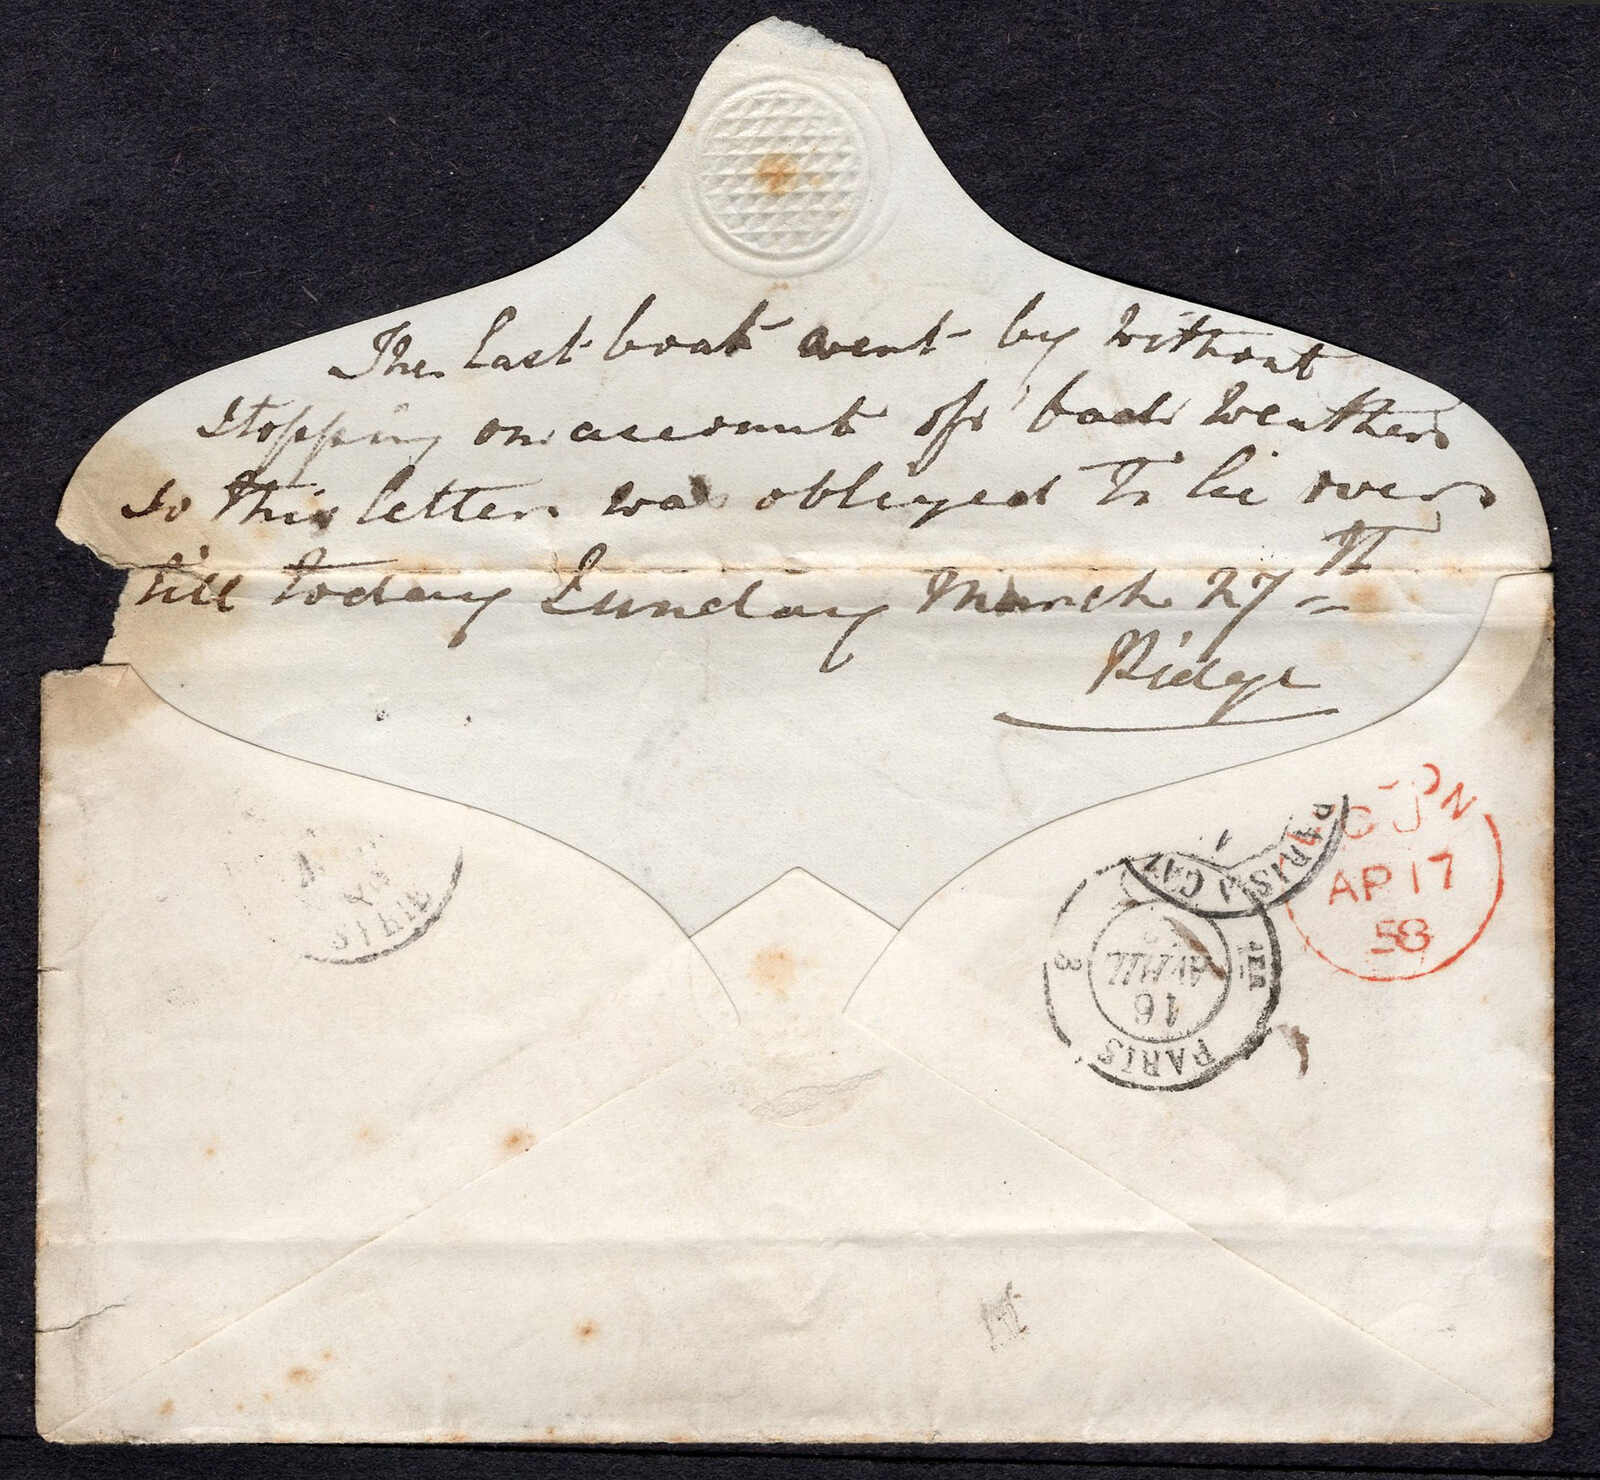 The last boat went by without
stopping on account of bad weather
so this letter was obliged to lie over
till today Sunday March 27th
Ridge
LONDON
CJ
AP 17
58
PARIS A CA
3
AVRIL
16
PARIS